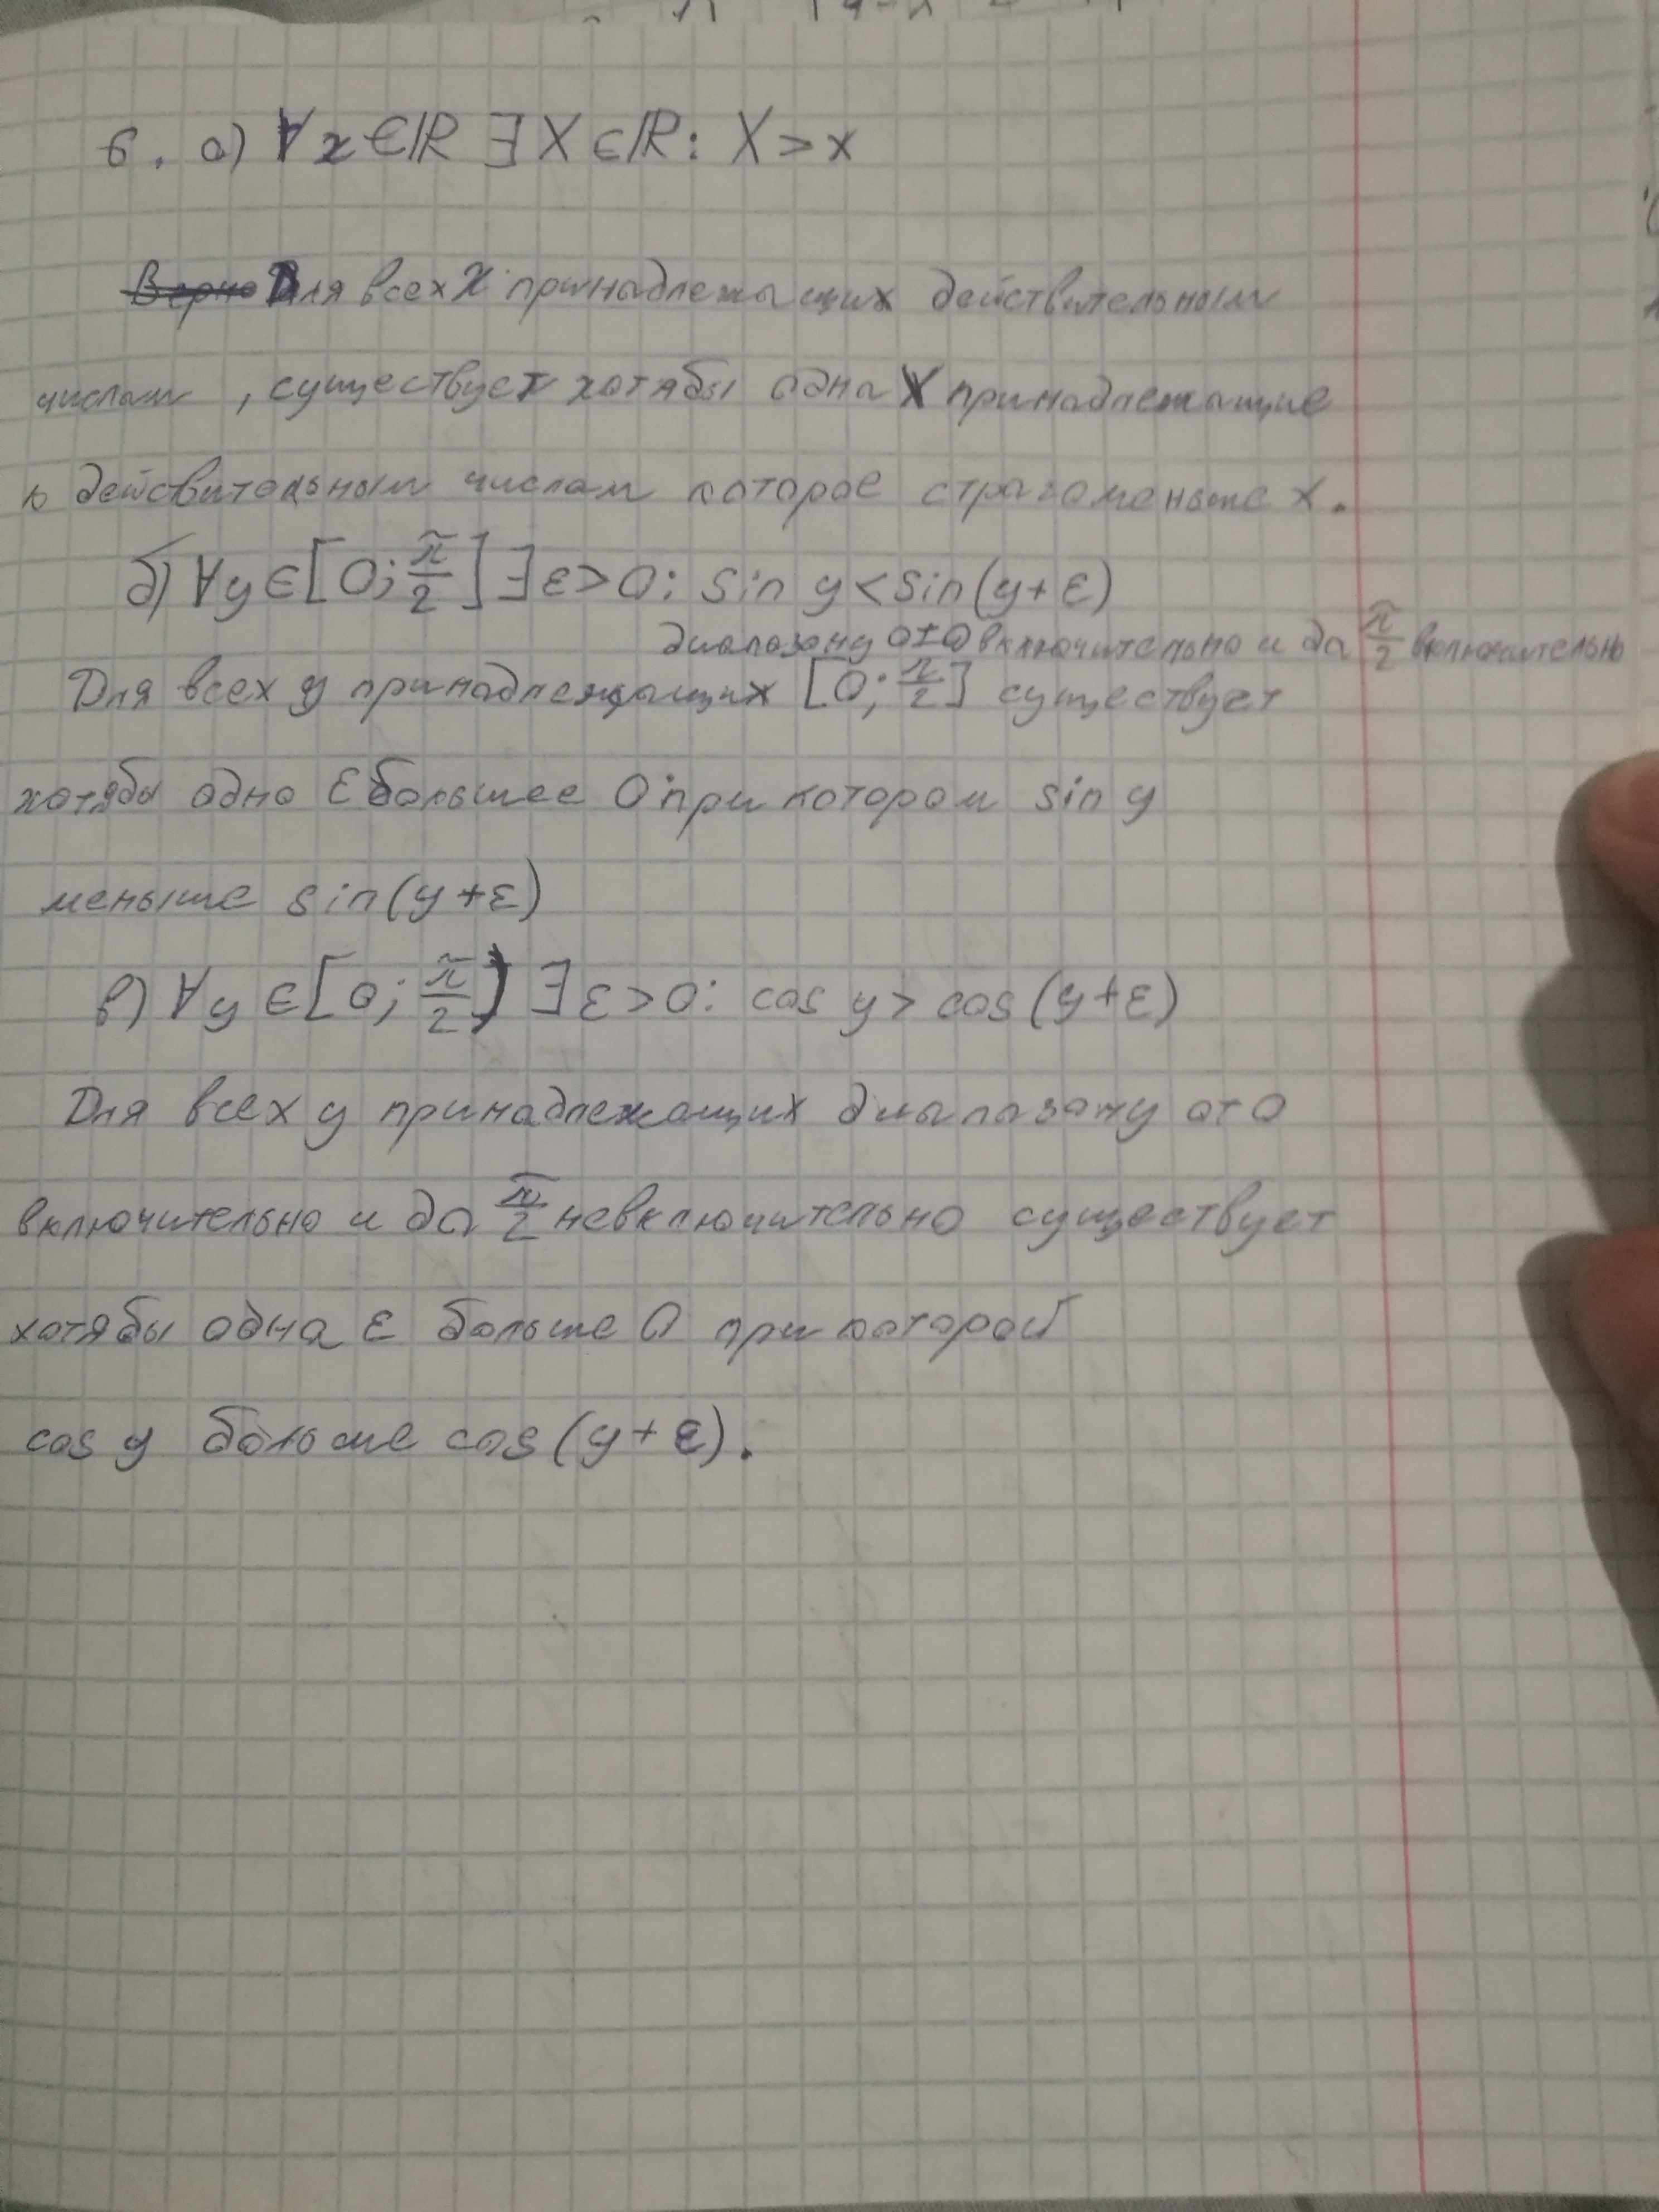 6. а) ∀x∈ℝ ∃X∈ℝ: X>x
Для всех x принадлежащих действительным
числам, существует хотябы одна X принадлежащие
к действительным числам которое строго меньше x.
б) ∀y∈[0;π/2] ∃ε>0: sin y<sin(y+ε)
диапазону от 0 включительно и до π/2 включительно
Для всех y принадлежащих [0;π/2] существует
хотябы одно ε большее 0 при котором sin y
меньше sin(y+ε)
в) ∀y∈[0;π/2) ∃ε>0: cos y>cos(y+ε)
Для всех y принадлежащих диапазону от 0
включительно и до π/2 невключительно существует
хотябы одна ε больше 0 при которой
cos y больше cos(y+ε).